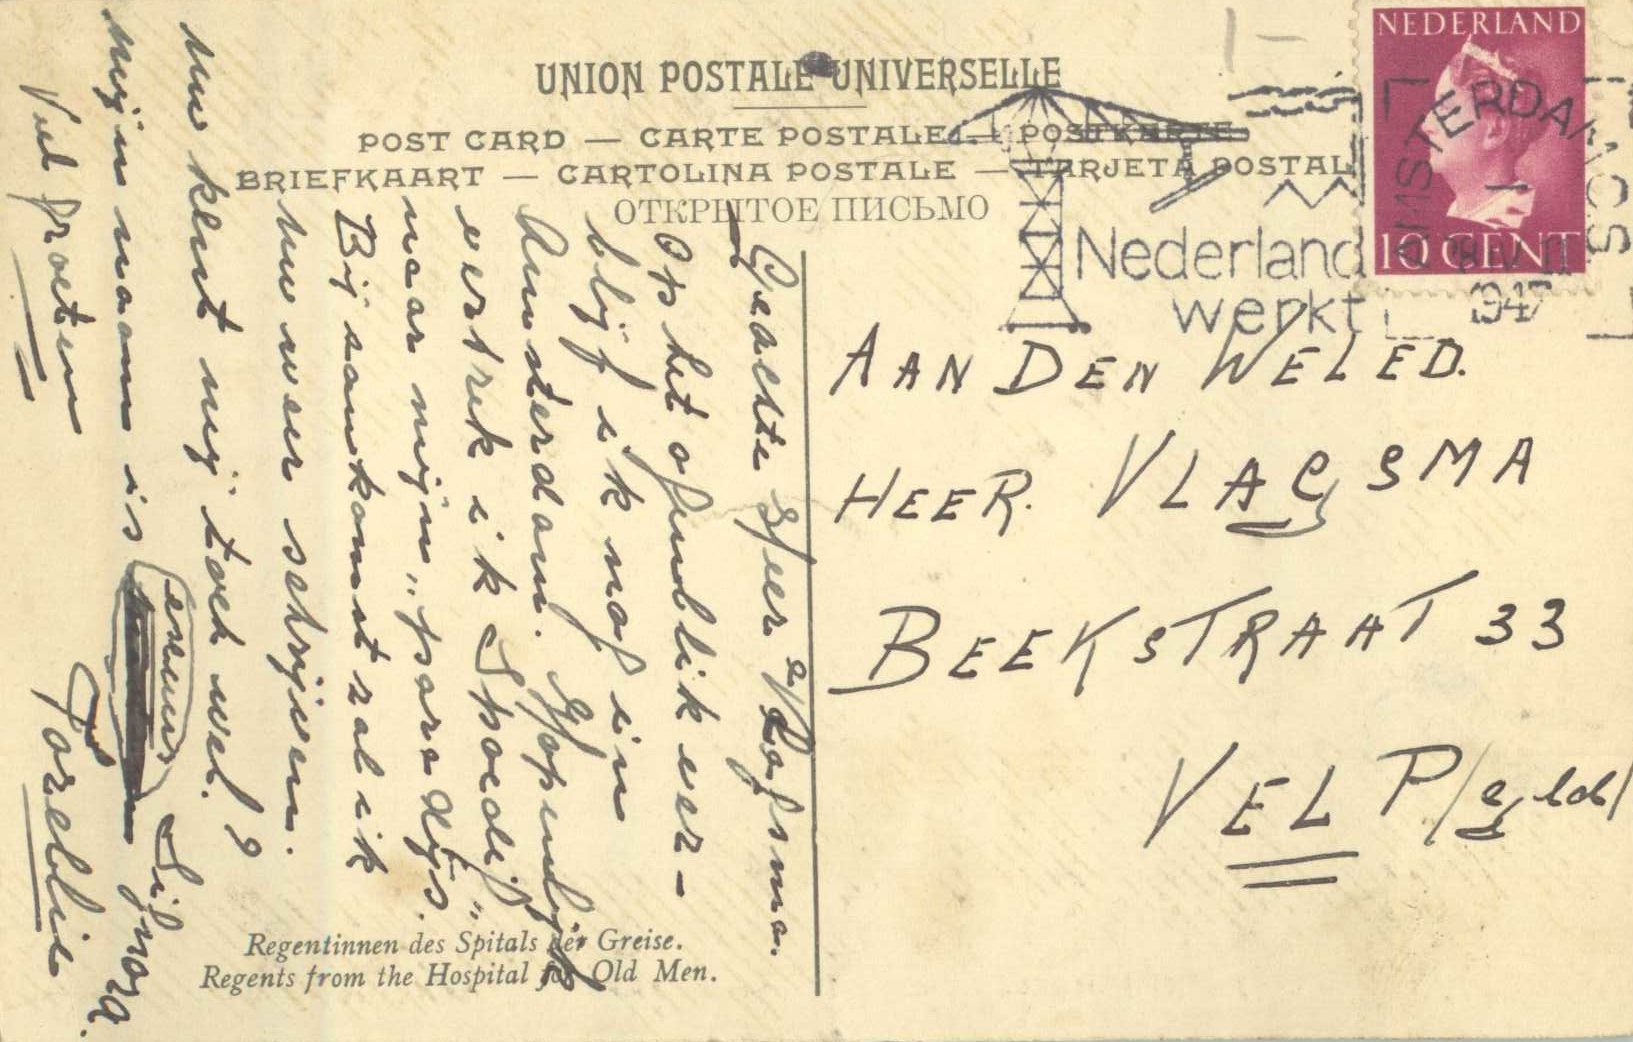 UNION POSTALE UNIVERSELLE
POST CARD — CARTE POSTALE — POSTKARTE
BRIEFKAART — CARTOLINA POSTALE — TARJETA POSTAL
ОТКРЫТОЕ ПИСЬМО
NEDERLAND
10 CENT
AMSTERDAM C.S.
1947
Nederland
werkt
AAN DEN WELED.
HEER. VLAGSMA
BEEKSTRAAT 33
VELP/gld/
Geachte Heer Vlagsma.
Op het ogenblik ver-
blijf ik nog in
Amsterdam. Hopenlijk
vertrek ik Spoedig
naar mijn „paradijs."
Bij aankomst zal ik
Uw weer schrijven.
Uw kent mij toch wel?
Mijn naam is
Veel groeten
Regentinnen des Spitals der Greise.
Regents from the Hospital for Old Men.